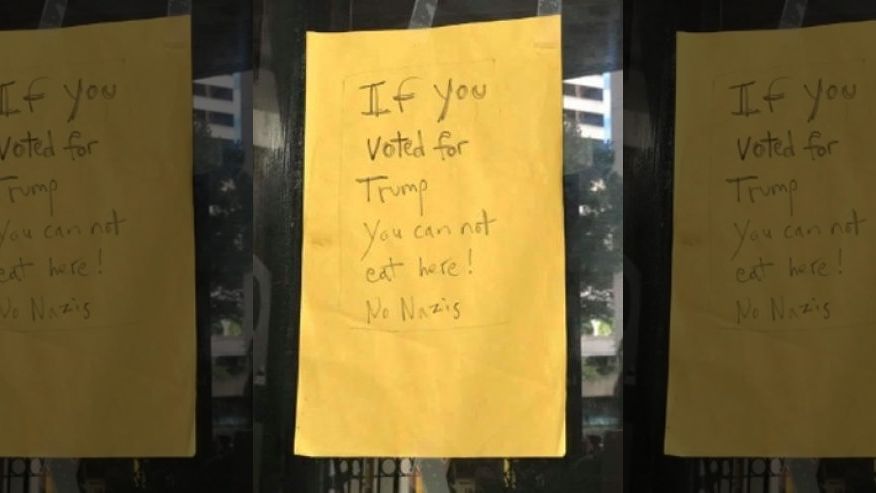 If you
Voted for
Trump
You can not
eat here!
No Nazis